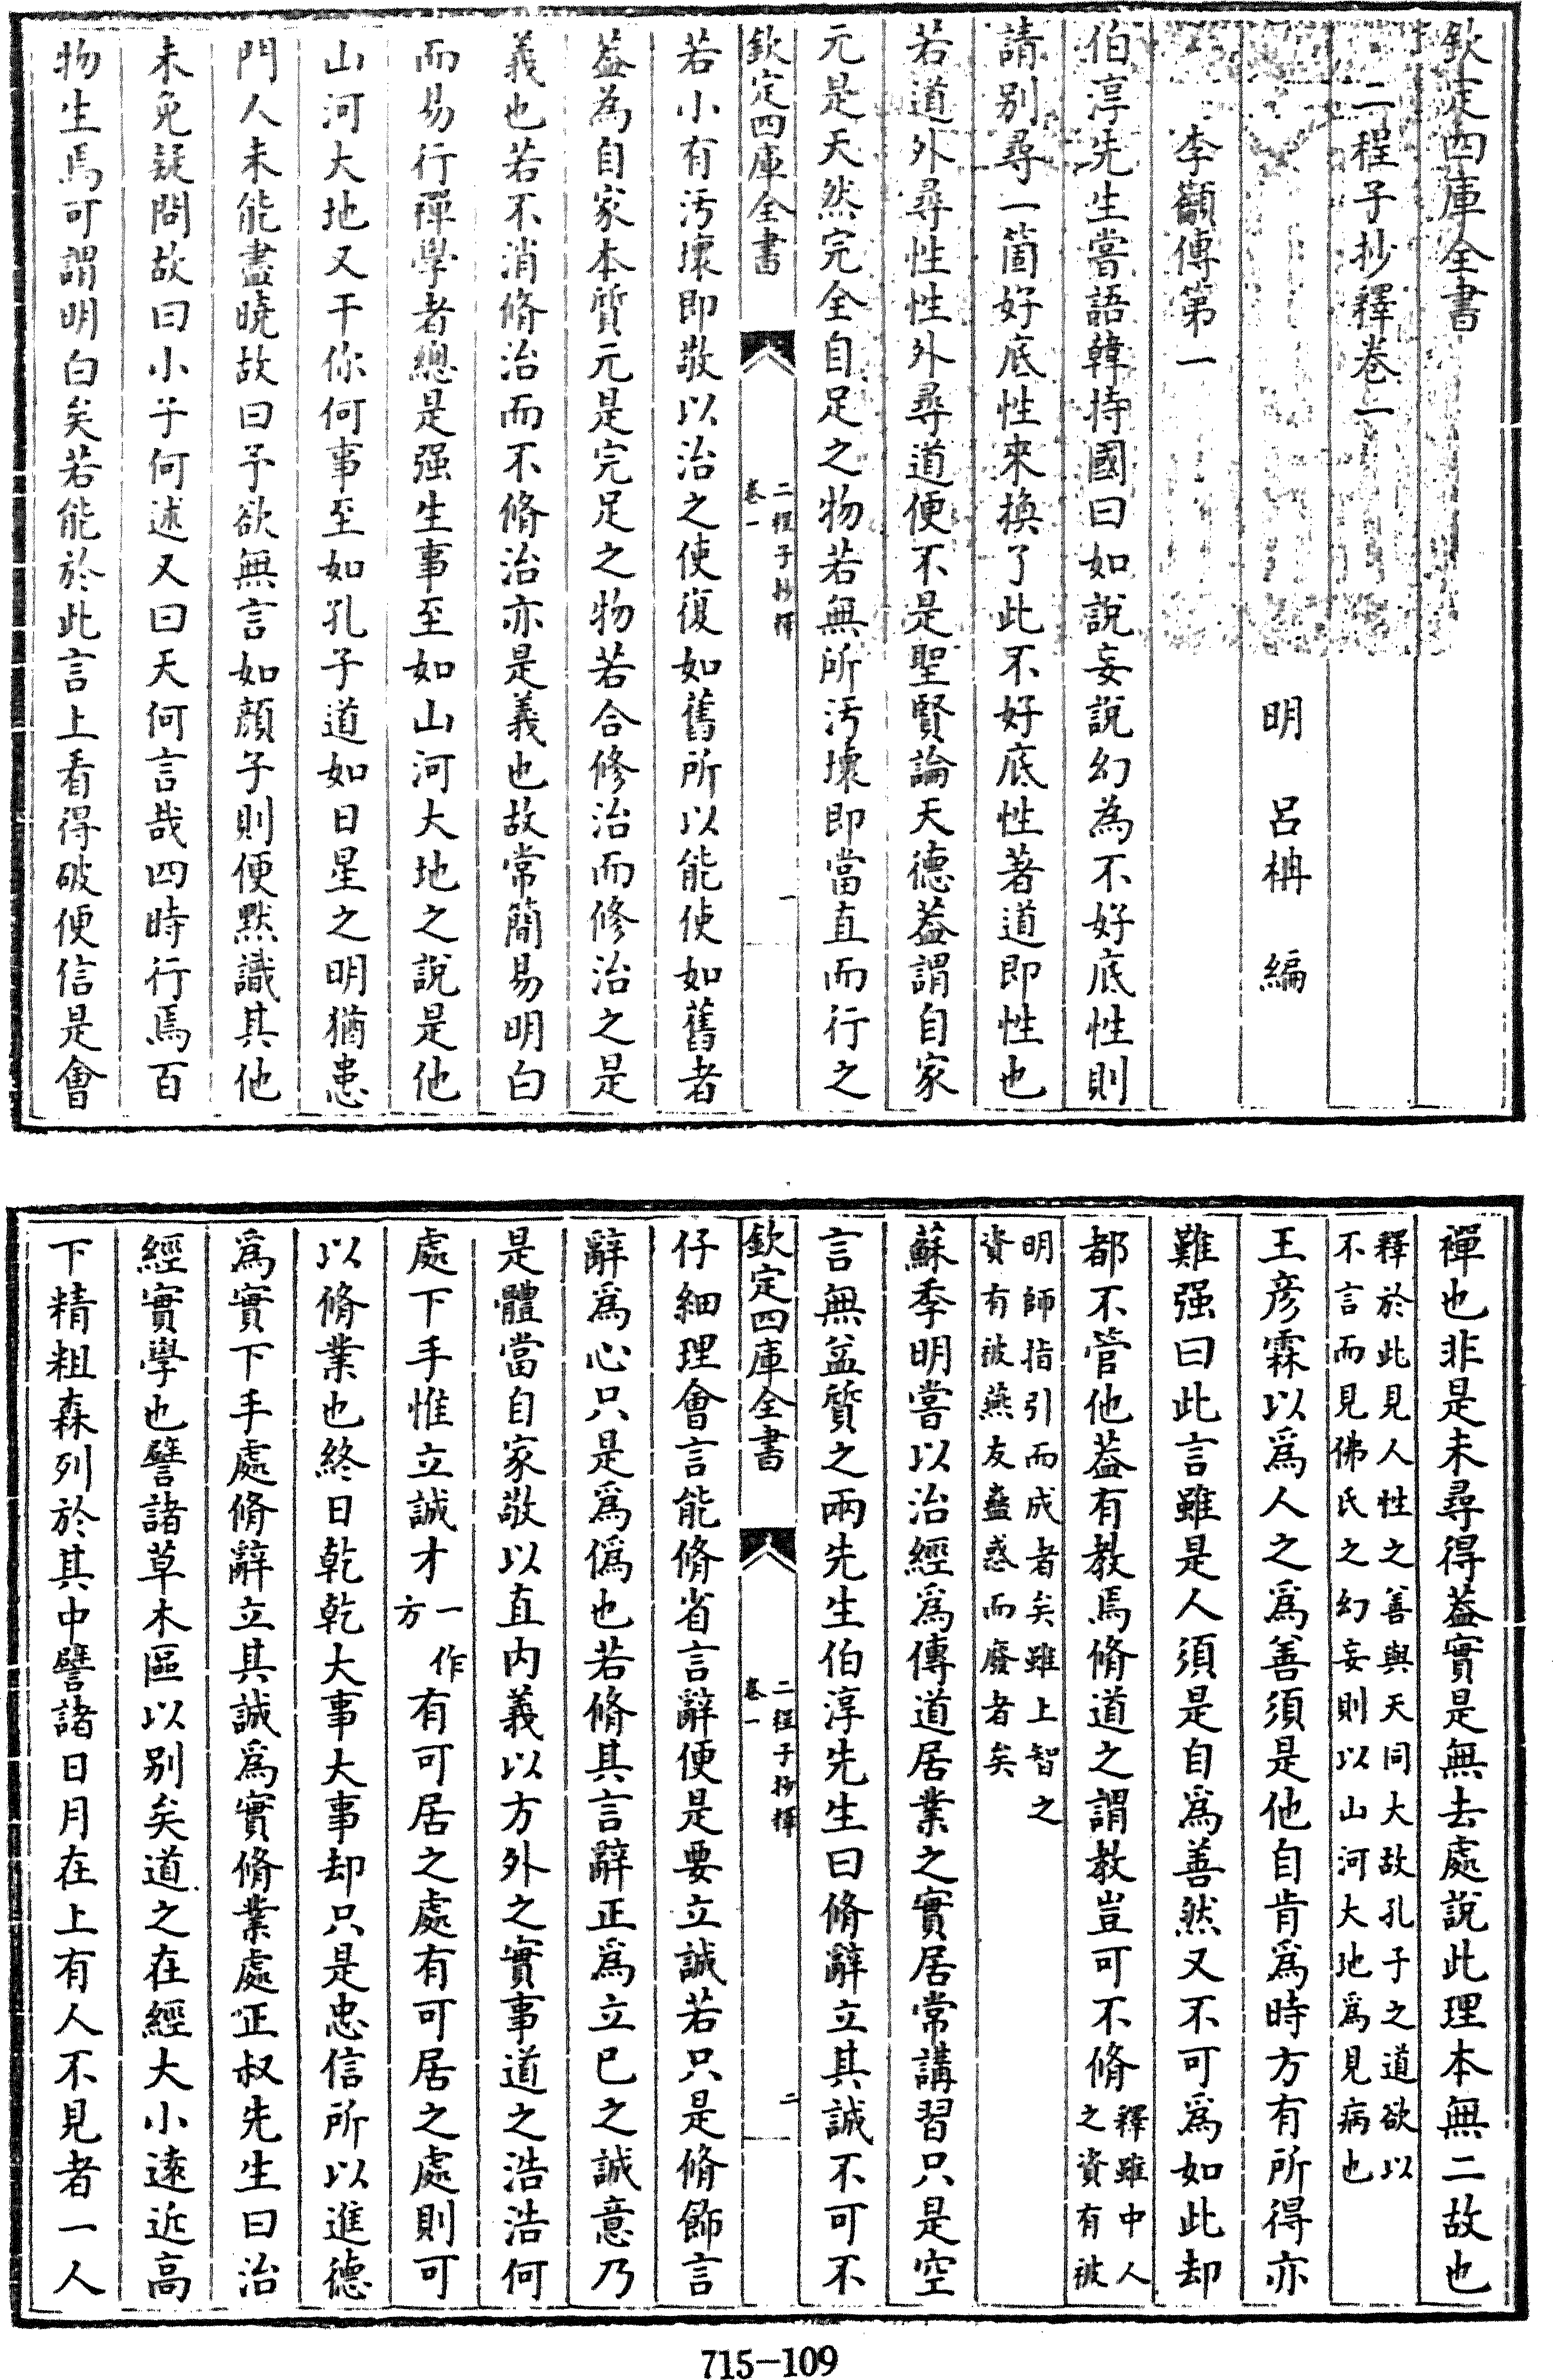 欽定四庫全書
二程子抄釋卷一
明　呂柟　編
李籲傳第一
伯淳先生嘗語韓持國曰如說妄說幻為不好底性則
請别尋一箇好底性來換了此不好底性著道即性也
若道外尋性性外尋道便不是聖賢論天德葢謂自家
元是天然完全自足之物若無所汚壞即當直而行之
欽定四庫全書
二程子抄釋
卷一
一
若小有汚壞即敬以治之使復如舊所以能使如舊者
葢為自家本質元是完足之物若合修治而修治之是
義也若不消脩治而不脩治亦是義也故常簡易明白
而易行禪學者總是强生事至如山河大地之說是他
山河大地又干你何事至如孔子道如日星之明猶患
門人未能盡曉故曰予欲無言如顔子則便黙識其他
未免疑問故曰小子何述又曰天何言哉四時行焉百
物生焉可謂明白矣若能於此言上看得破便信是會
禪也非是未尋得葢實是無去處說此理本無二故也
釋於此見人性之善與天同大故孔子之道欲以
不言而見佛氏之幻妄則以山河大地爲見病也
王彦霖以爲人之爲善須是他自肯爲時方有所得亦
難强曰此言雖是人須是自爲善然又不可爲如此却
都不管他葢有教焉脩道之謂教豈可不脩
釋雖中人
之資有被
明師指引而成者矣雖上智之
資有被燕友蠱惑而廢者矣
蘇季明嘗以治經爲傳道居業之實居常講習只是空
言無益質之兩先生伯淳先生曰脩辭立其誠不可不
欽定四庫全書
二程子抄釋
卷一
二
仔細理會言能脩省言辭便是要立誠若只是脩飾言
辭爲心只是爲僞也若脩其言辭正爲立已之誠意乃
是體當自家敬以直内義以方外之實事道之浩浩何
處下手惟立誠才一作方有可居之處有可居之處則可
以脩業也終日乾乾大事大事却只是忠信所以進德
爲實下手處脩辭立其誠爲實脩業處正叔先生曰治
經實學也譬諸草木區以别矣道之在經大小遠近高
下精粗森列於其中譬諸日月在上有人不見者一人
715-109